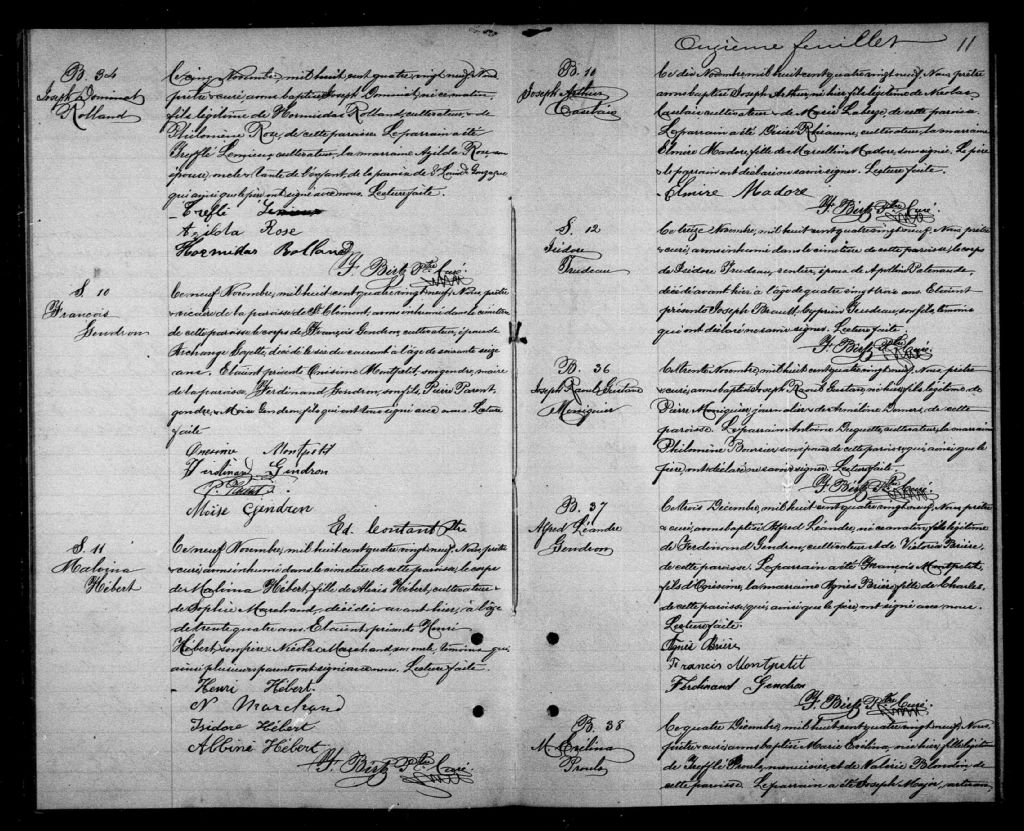 B. 34
Joseph Dominat
Rolland
Ce cinq Novembre, mil huit cent quatre vingt neuf, Nous
prêtre curé, avons baptisé Joseph Dominat, né ce matin,
fils légitime de Hormidas Rolland, cultivateur, & de
Philomène Rose, de cette paroisse. Le parrain a été
Trefflé Lemieux cultivateur, la marraine Azilda Rose, son
épouse, oncle & tante de l'enfant, de la paroisse de St Louis de Gonzague
qui ainsi que le père ont signé avec nous. Lecture faite.
Trefflé Lemieux
Azilda Rose
Hormidas Rolland
F. Birtz Ptre Curé.
S. 10
François
Gendron
Ce neuf Novembre, mil huit cent quatre vingt neuf, Nous, prêtre
vicaire de la paroisse de St. Clément, avons inhumé dans le cimetière
de cette paroisse le corps de François Gendron, cultivateur, époux de
Archange Goyette, décédé le six du courant à l'âge de soixante seize
ans. Etaient présents Onésime Montpetit, son gendre, maire
de la paroisse, Ferdinand Gendron, son fils, Pierre Parent
gendre, & Moïse Gendron, fils qui ont tous signé avec nous. Lecture
faite
Onésime Montpetit
Ferdinand Gendron
P. Parent
Moïse Gendron
Ed. Coutant Ptre
S. 11
Malvina
Hébert
Ce neuf Novembre, mil huit cent quatre vingt neuf, Nous, prêtre
& curé, avons inhumé dans le cimetière de cette paroisse, le corps
de Malvina Hébert, fille de Alexis Hébert, cultivateur &
de Sophie Marchand, décédée avant hier, à l'âge
de trente quatre ans. Etaient présents Henri
Hébert, son frère & Nicolas Marchand, son oncle, témoins qui
ainsi plusieurs parents ont signé avec nous. Lecture faite.
Henri Hébert.
N Marchand
Isidore Hébert
Albina Hébert
F. Birtz Ptre Curé.
Onzième feuillet 11
B. 10
Joseph Arthur
Ce dix Novembre, mil huit cent quatre vingt neuf, Nous prêtre
avons baptisé Joseph Arthur, né hier, fils légitime de Nicolas
cultivateur & de Marie Laberge, de cette paroisse.
Le parrain a été Désiré cultivateur, la marraine
Elmire Madore, fille de Marcellin Madore, soussignée. Le père
& le parrain ont déclaré ne savoir signer. Lecture faite.
Elmire Madore
F. Birtz Ptre Curé
S. 12
Isidore
Trudeau
Ce treize Novembre, mil huit cent quatre vingt neuf, Nous prêtre
& curé, avons inhumé dans le cimetière de cette paroisse, le corps
de Isidore Trudeau, rentier, époux de Apolline Patenaude,
décédé avant hier à l'âge de quatre vingt trois ans. Etaient
présents Joseph & Cyprien Trudeau, son fils, témoins
qui ont déclaré ne savoir signer. Lecture faite.
F. Birtz Ptre Curé.
B. 36
Joseph Raoul Gustave
Ce trente Novembre, mil huit cent quatre vingt neuf, Nous, prêtre
& curé, avons baptisé Joseph Raoul Gustave, né hier, fils légitime de
Pierre journalier & de de cette
paroisse. Le parrain Antoine Duquette, cultivateur, la marraine
Philomène Bourcier son épouse de cette paroisse qui ainsi que le
père, ont déclaré ne savoir signer. Lecture faite.
F. Birtz Ptre Curé.
B. 37
Alfred Léandre
Gendron
Ce trois Décembre, mil huit cent quatre vingt neuf, Nous, prêtre
& curé, avons baptisé Alfred Léandre, né ce matin, fils légitime
de Ferdinand Gendron, cultivateur et de Victoria Brière,
de cette paroisse. Le parrain a été François Montpetit,
fils d'Onésime, la marraine Agnès Brière, fille de Charles,
de cette paroisse, qui, ainsi que le père, ont signé avec nous.
Lecture faite.
Agnès Brière
Francis Montpetit
Ferdinand Gendron
F. Birtz Ptre Curé.
B. 38
M. Exélina
Proulx
Ce quatre Décembre, mil huit cent quatre vingt neuf, Nous
prêtre & curé, avons baptisé Marie Exélina, née hier, fille légitime
de Trefflé Proulx, menuisier, et de Valérie Blondin, de
cette paroisse. Le parrain a été Joseph artisan,